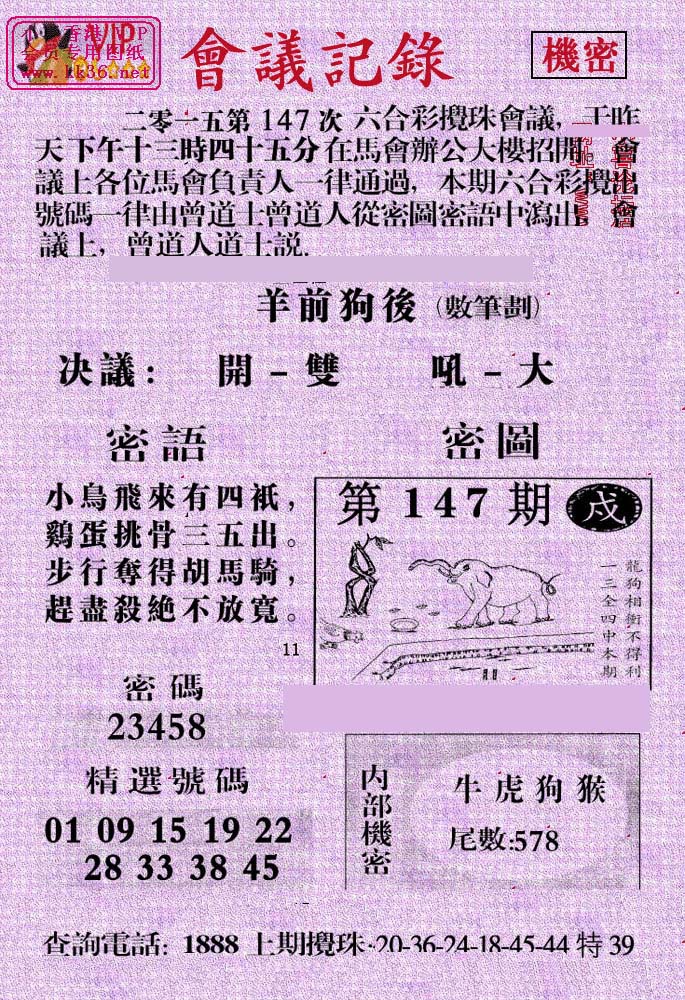 香港
VIP
会员专用图纸
www.kk36.net
會議記錄
機密
二零一五第147次 六合彩攪珠會議，于昨
天下午十三時四十五分在馬會辦公大樓招開，會
議上各位馬會負責人一律通過，本期六合彩攪出
號碼一律由曾道士曾道人從密圖密語中瀉出，會
議上，曾道人道士説.
羊前狗後（數筆劃）
决議： 開－雙 吼－大
密語
小鳥飛來有四衹，
鷄蛋挑骨三五出。
步行奪得胡馬騎，
趕盡殺絕不放寬。
11
密圖
第147期 戍
龍狗相衝不得利
一三全四中本期
密碼
23458
精選號碼
01 09 15 19 22
28 33 38 45
内部機密
牛虎狗猴
尾數:578
查詢電話：1888 上期攪珠:20-36-24-18-45-44 特39